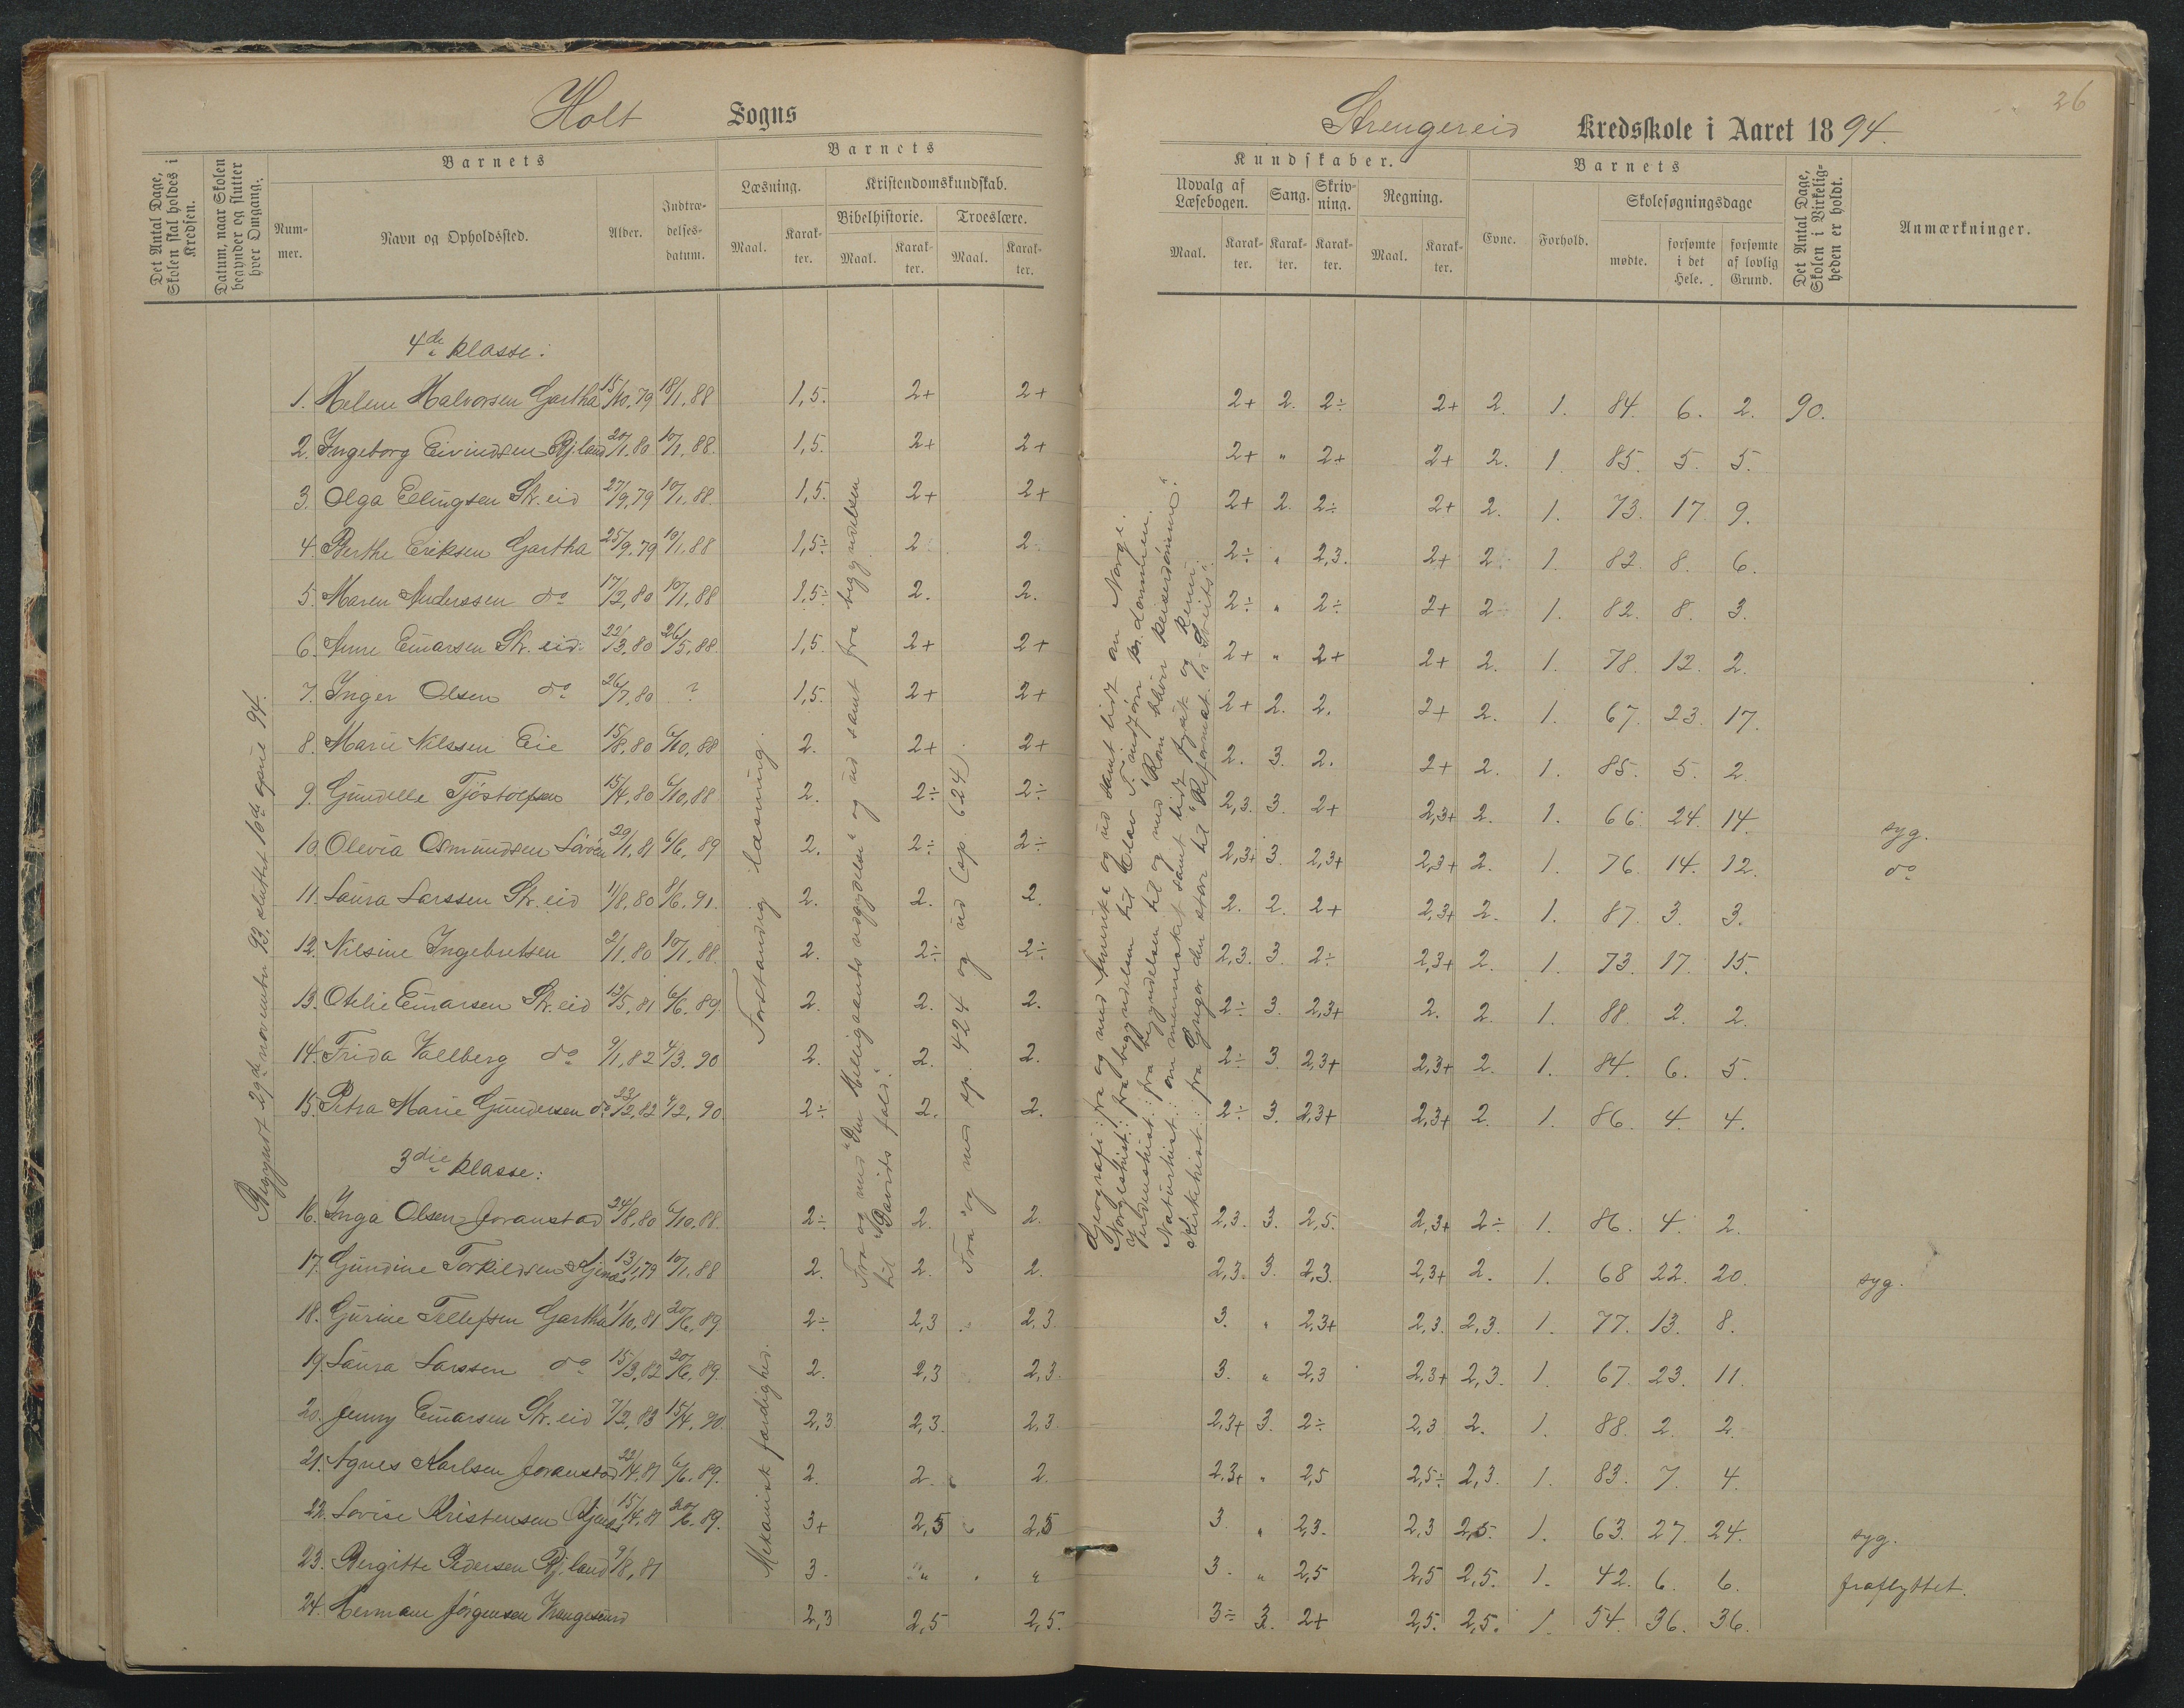 Holt Sogns
Strengereid Kredsskole i Aaret 1894.
26
Det Antal Dage, Skolen skal holdes i Kredsen.
Datum, naar Skolen begynder og slutter hver Omgang.
Barnets
Nummer.
Navn og Opholdssted.
Alder.
Indtrædelsesdatum.
Barnets
Læsning.
Kristendomskundskab.
Bibelhistorie.
Troeslære.
Maal. Karakter. Maal. Karakter. Maal. Karakter.
Kundskaber.
Udvalg af Læsebogen.
Sang.
Skrivning.
Regning.
Maal. Karakter. Karakter. Karakter. Maal. Karakter.
Barnets
Evne. Forhold.
Skolesøgningsdage
mødte.
forsømte i det Hele.
forsømte af lovlig Grund.
Det Antal Dage, Skolen i Virkeligheden er holdt.
Anmærkninger.
Begyndt 29de november 93, sluttet 16de april 94.
4de klasse:
1. Helene Halvorsen Gartha 15/10.79 18/1.88 1,5. 2+ 2+ 2+ 2. 2÷ 2+ 2. 1. 84. 6. 2. 90.
2. Ingeborg Eivindsen Bj.land 20/1.80 10/1.88. 1,5. 2+ 2+ 2+ " 2+ 2+ 2. 1. 85. 5. 5.
3. Olga Ellingsen Str.eid 27/9.79 10/1.88. 1,5. 2+ 2+ 2+ 2. 2÷ 2+ 2. 1. 73. 17. 9.
4. Berthe Eriksen Gartha 25/9.79 10/1.88 1,5÷ 2. 2. 2÷ " 2,3. 2+ 2 1. 82. 8. 6.
5. Maren Anderssen do 17/2.80 10/1.88 1,5÷ 2. 2. 2÷ " 2÷ 2+ 2 1. 82. 8. 3.
6. Anne Einarsen Str.eid. 22/3.80 26/5.88. 1,5. 2+ 2+ 2+ " 2+ 2+ 2. 1. 78. 12. 2.
7. Inger Olsen do 26/7.80 ? 1,5. 2+ 2+ 2+ 2. 2. 2+ 2. 1. 67. 23. 17.
8. Marie Nilssen Eie 15/8.80 6/10.88 2. 2+ 2+ 2. 3. 2. 2+ 2. 1. 85. 5. 2
9. Gundelle Tjöstolfsen 15/4.80 6/10.88 2. 2÷ 2÷ 2,3. 3. 2+ 2,3+ 2. 1. 66. 24. 14. syg.
10. Olevia Osmundsen 29/1.81 6/6.89 2. 2÷ 2÷ 2,3+ 3. 2,3+ 2,3+ 2. 1. 76. 14. 12. do
11. Laura Larssen Str.eid 11/8.80 8/6.91. 2. 2. 2. 2. 2. 2+ 2,3+ 2. 1. 87. 3. 3.
12. Nilsine Ingebretsen 2/1.80 10/1.88. 2. 2÷ 2÷ 2,3. 3. 2÷ 2,3+ 2. 1. 73. 17. 15.
13. Otelie Einarsen Str.eid 12/5.81 6/6.89. 2. 2. 2. 2÷ 3. 2,3+ 2. 2. 1. 88. 2. 2.
14. Frida Vallberg do 9/1.82 4/3.90 2. 2. 2. 2÷ 3. 2,3+ 2,3+ 2. 1. 84. 6. 5.
15. Petra Marie Gundersen do 23/2.82 4/2.90. 2÷ 2. 2. 2÷ 3. 2,3+ 2,3+ 2. 1. 86. 4. 4.
3die klasse:
16. Inga Olsen Joranstad 24/8.80 6/10.88. 2÷ 2. 2. 2,3. 3. 2,5. 2,3+ 2÷ 1. 86. 4. 2.
17. Gundine Torkildsen 13/1.79 10/1.88 2. 2. 2. 2,3. 3. 2,3. 2,3+ 2. 1. 68 22. 20. syg.
18. Gurine Tellefsen Gartha 1/10.81 20/6.89 2÷ 2,3 2,3. 3. " 2,3+ 2,3. 2,3. 1. 77. 13. 8.
19. Laura Larssen do 15/3.82 20/6.89. 2. 2,3 2,3. 3. " 2,3 2,3+ 2,3. 1. 67. 23. 11.
20. Jenny Einarsen Str.eid 7/2.83 15/4.90. 2,3 2,3. 2,3 2,3+ 3. 2÷ 2,3 2. 1. 88. 2. 2.
21. Agnes Karlsen Joranstad 22/4.81 6/6.89. 2. 2. 2. 2,3+ " 2,5 2,5÷ 2,3. 1. 83. 7. 4.
22. Lovise Kristensen 15/4.81 20/6.89. 3+ 2,5 2,5 3 " 2,3. 2,3 2,5. 1. 63. 27. 24. syg.
23. Bergitte Pedersen Bj.land 9/8.81 3. " " 3. " 2,5 2,5 2,5. 1. 42. 6. 6. fraflyttet.
24. Hermann Jörgensen 2,3 2,5 2,5. 3÷ 3. 2+ 2,5. 2,5. 1. 54. 36. 36.
Forstandig læsning.
Mekanisk færdighed.
Fra og med "Den Helligaands udgydelse" og ud samt fra begyndelsen
til "Davids fald."
Fra og med sp. 424 og ud (sp 624)
Geografi: fra og med Amerika og ud samt lidt om Norge.
Norgeshist.: fra begyndelsen til Olav
Verdenshist.: fra begyndelsen til og med "Rom bliver keiserdömme".
Naturhist.: om mennesket samt lidt fysik og kemi.
Kirkehist.: fra Gregor den store til "Reformat. i Sveits".